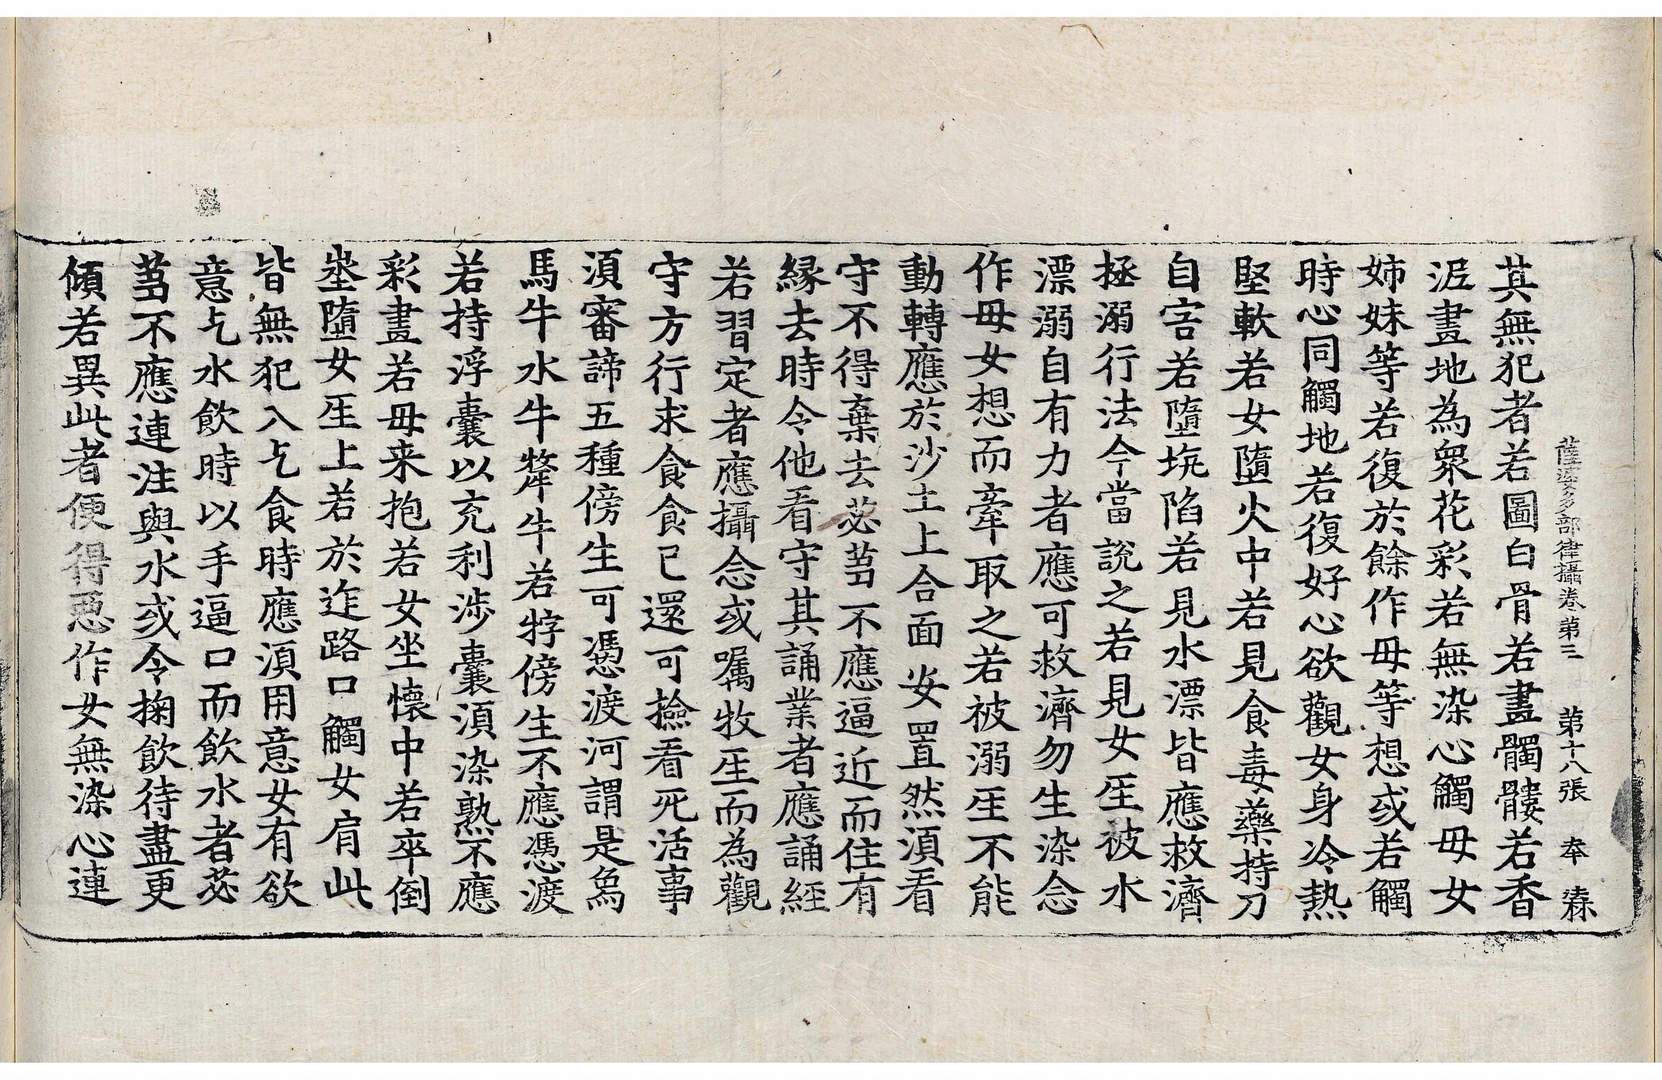 薩婆多部律攝卷第三　第十八張　奉
其無犯者若圖白骨若畫髑髏若香
泥畫地為衆花彩若無染心觸母女
姉妹等若復於餘作母等想或若觸
時心同觸地若復好心欲觀女身冷熱
堅軟若女墮火中若見食毒藥持刀
自害若墮坑陷若見水漂皆應救濟
拯溺行法今當說之若見女𤯔被水
漂溺自有力者應可救濟勿生染念
作母女想而牽取之若被溺𤯔不能
動轉應於沙土上合面安置然須看
守不得棄去苾蒭不應逼近而住有
縁去時令他看守其誦業者應誦經
若習定者應攝念或囑牧𤯔而為觀
守方行求食食已還可撿看死活事
須審諦五種傍生可憑渡河謂是象
馬牛水牛犛牛若牸傍生不應憑渡
若持浮囊以充利涉囊須染熟不應
彩畫若母来抱若女坐懷中若卒倒
㘴墮女𤯔上若於迮路口觸女肩此
皆無犯入乞食時應須用意女有欲
意乞水飲時以手逼口而飲水者苾
蒭不應連注與水或令掬飲待盡更
傾若異此者便得惡作女無染心連